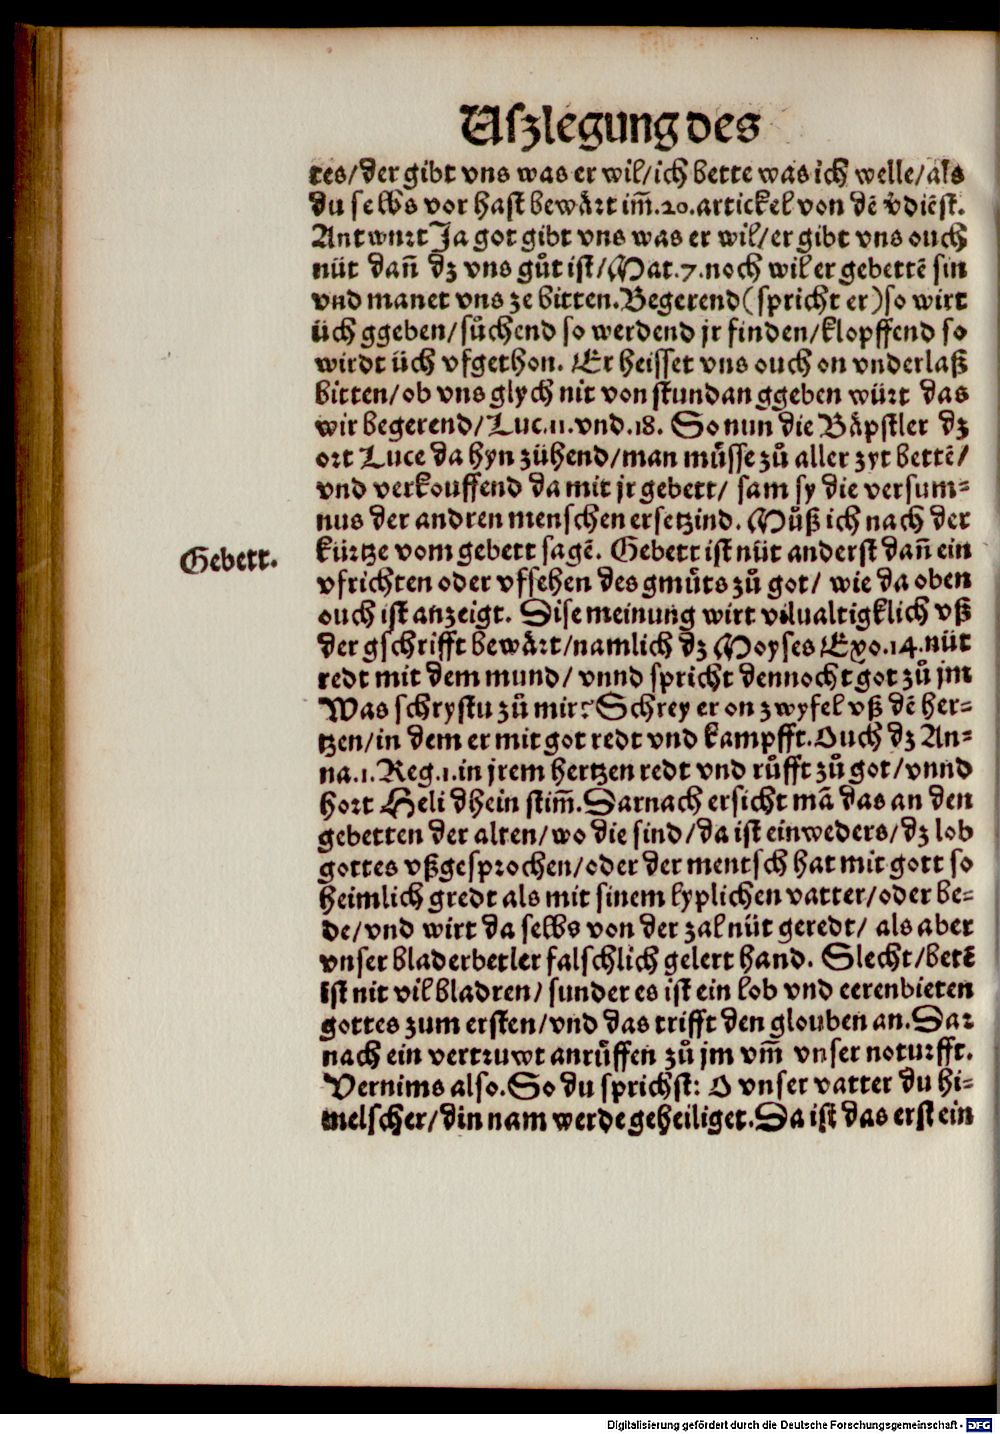 Uſzlegung des
tes/der gibt vns was er wil/ich bette was ich welle/als
du selbs vor hast bewärt im̃.20.artickel von dē v̄diēst.
Antwurt Ja got gibt vns was er wil/er gibt vns ouch
nüt dañ dz vns gůt ist/Mat.7.noch wil er gebettē sin
vnd manet vns ze bitten.Begerend(spricht er)so wirt
üch ggeben/sůchend so werdend jr finden/klopffend so
wirdt üch vfgethon. Er heisset vns ouch on vnderlaß
bitten/ob vns glych nit von stundan ggeben würt das
wir begerend/Luc.11.vnd.18. So nun die Bäpstler dz
ort Luce da hyn zühend/man müsse zů aller zyt bettē/
vnd verkouffend da mit jr gebett/ sam sy die versum-
nus der andren menschen ersetzind. Můß ich nach der
Gebett.
kürtze vom gebett sagē. Gebett ist nüt anderst dañ ein
vfrichten oder vfsehen des gmüts zů got/ wie da oben
ouch ist anzeigt. Dise meinung wirt vilualtigklich vß
der gschrifft bewärt/namlich dz Moyses Exo.14.nüt
redt mit dem mund/ vnnd spricht dennocht got zů jm
Was schrystu zů mir? Schrey er on zwyfel vß dē her-
tzen/in dem er mit got redt vnd kampfft.Ouch dz An-
na.1.Reg.1.in jrem hertzen redt vnd růfft zů got/vnnd
hort Heli dhein stim̃.Darnach ersicht mā das an den
gebetten der alten/wo die sind/da ist einweders/dz lob
gottes vßgesprochen/oder der mentsch hat mit gott so
heimlich gredt als mit sinem lyplichen vatter/oder be-
de/vnd wirt da selbs von der zal nüt geredt/ als aber
vnser bladerbetler falschlich gelert hand. Slecht/betē
ist nit vil bladren/ sunder es ist ein lob vnd eerenbieten
gottes zum ersten/vnd das trifft den glouben an.Dar
nach ein vertruwt anrüffen zů jm vm̃ vnser noturfft.
Vernims also.So du sprichst: O vnser vatter du hi-
melscher/din nam werde geheiliget.Da ist das erst ein
Digitalisierung gefördert durch die Deutsche Forschungsgemeinschaft - DFG